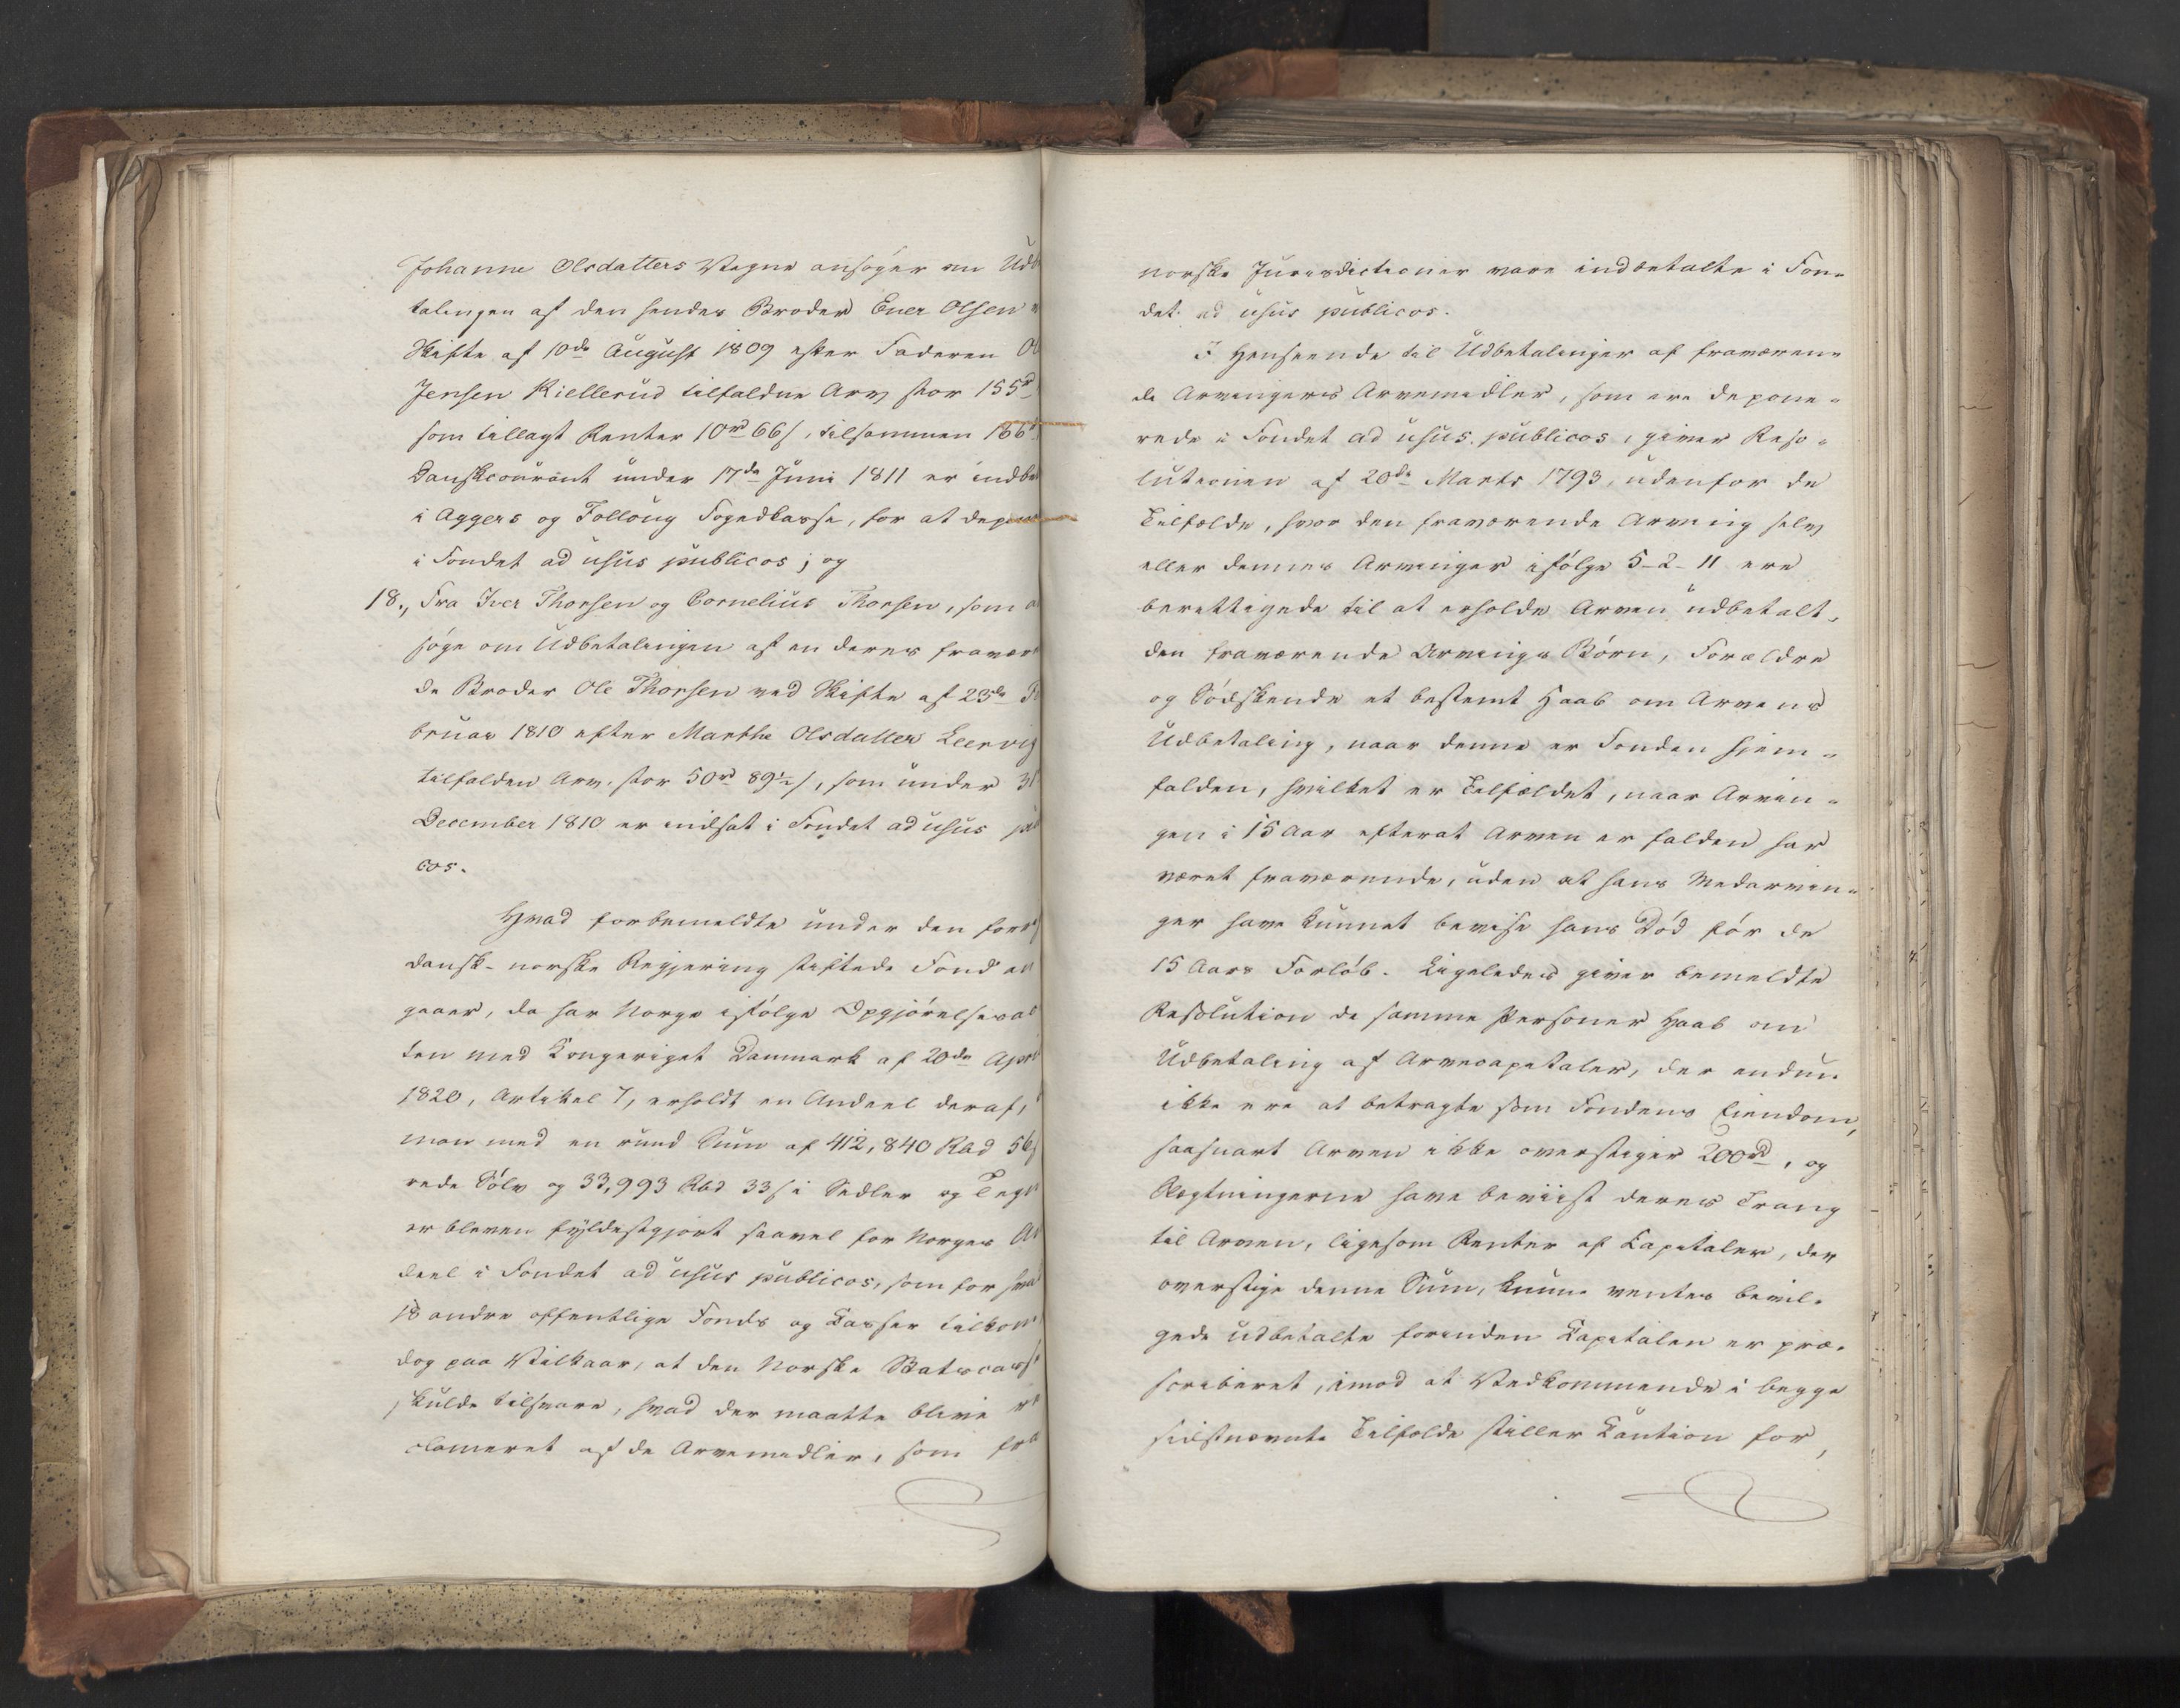 Johanne Olsdatters Vegne ansøger om Udb
talingen af den hendes Broder Ener Olsen
Skifte af 10de August 1809 efter Faderen Ol
Jensen Kiellerud tilfaldne Arv stor 155rd
som tillagt Renter 10rd 66s, tilsammen 166rd
Danskcourant under 17de Juni 1811 er indbe
i Aggers og Folloug Fogedkasse, for at depone
i Fondet ad usus publicos; og
18., Fra Iver Thorsen og Cornelius Thorsen, som a
søge om Udbetalingen af en deres fraværen
de Broder Ole Thorsen ved Skifte af 23de Fe
bruar 1810 efter Marthe Olsdatter Leervig
tilfalden Arv, stor 50rd 89½s, som under 31
December 1810 er indsat i Fondet ad usus pub
cos.
Hvad forbemeldte under den forri
dansk-norske Regjering stiftede Fond an
gaaer, da har Norge ifølge Opgjørelsesac
ten med Kongeriget Danmark af 20de Apri
1820, Artikel 7, erholdt en Andeel deraf,
man med en rund Sum af 412,840 Rbd 56s
rede Sølv og 33,993 Rbd 33s i Sedler og Tegn
er bleven fyldestgjort saavel for Norges An
deel i Fondet ad usus publicos, som for hvad
18 andre offentlige Fonds og Kasser tilkom
dog paa Vilkaar, at den Norske Statscasse
skulde tilsvare, hvad der maatte blive re
clameret af de Arvemidler, som fra
norske Jurisdictioner vare indbetalte i Fon-
det ad usus publicos.
I Henseende til Udbetalinger af fraværen-
de Arvingers Arvemidler, som ere depone-
rede i Fondet ad usus publicos, giver Reso-
lutionen af 20de Marts 1793, udenfor de
Tilfælde, hvor den fraværende Arving selv
eller dennes Arvinger ifølge 5-2-11 ere
berettigede til at erholde Arven udbetalt,
den fraværende Arvings Børn, Forældre
og Sødskende et bestemt Haab om Arvens
Udbetaling, naar denne er Fonden hjem-
falden, hvilket er Tilfældet, naar Arvin-
gen i 15 Aar efterat Arven er falden har
været fraværende, uden at hans Medarvin-
ger have kunnet bevise hans Død før de
15 Aars Forløb. Ligeledes giver bemeldte
Resolution de samme Personer Haab om
Udbetaling af Arvecapitaler, der endnu
ikke ere at betragte som Fondens Eiendom,
saasnart Arven ikke overstiger 200rd, og
Slægtningerne have beviist deres Trang
til Arven, ligesom Renter af Kapitaler, der
overstige denne Sum, kunne ventes bevil-
gede udbetalte forinden Kapitalen er præ-
scriberet, imod at Vedkommende i begge
sidstnævnte Tilfælde stiller Caution for,